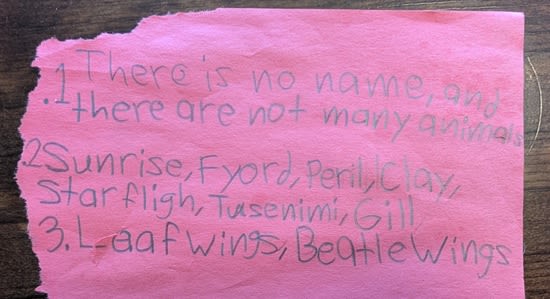 .1 There is no name, and
there are not many animals
.2 Sunrise, Fyord, Peril, Clay,
Starfligh, Tusenimi, Gill
3. Leafwings, BeatleWings